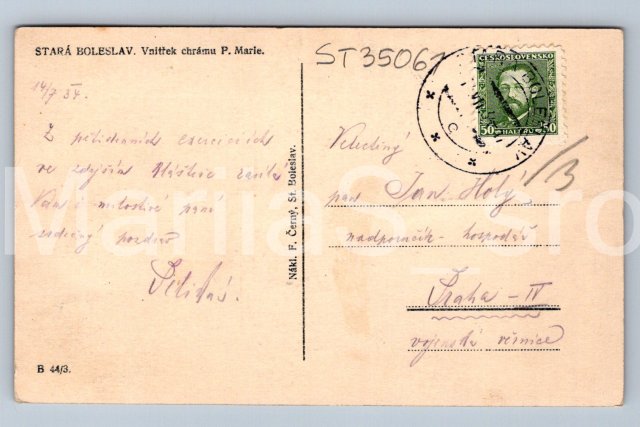 STARÁ BOLESLAV. Vnitřek chrámu P. Marie.
ST35061
14/7 34.
Z pětidenních exercicií
ve zdejším klášteře zasílá
Vám i milostivé paní
srdečný pozdrav
Nákl. F. Černý, St. Boleslav.
B 44/3.
ČESKOSLOVENSKO
50 HALÉŘŮ 50
BOLESLAV
1/3
Velectěný
pan Jan Holý
nadporučík - hospodář
Praha - IV
vojenská věznice